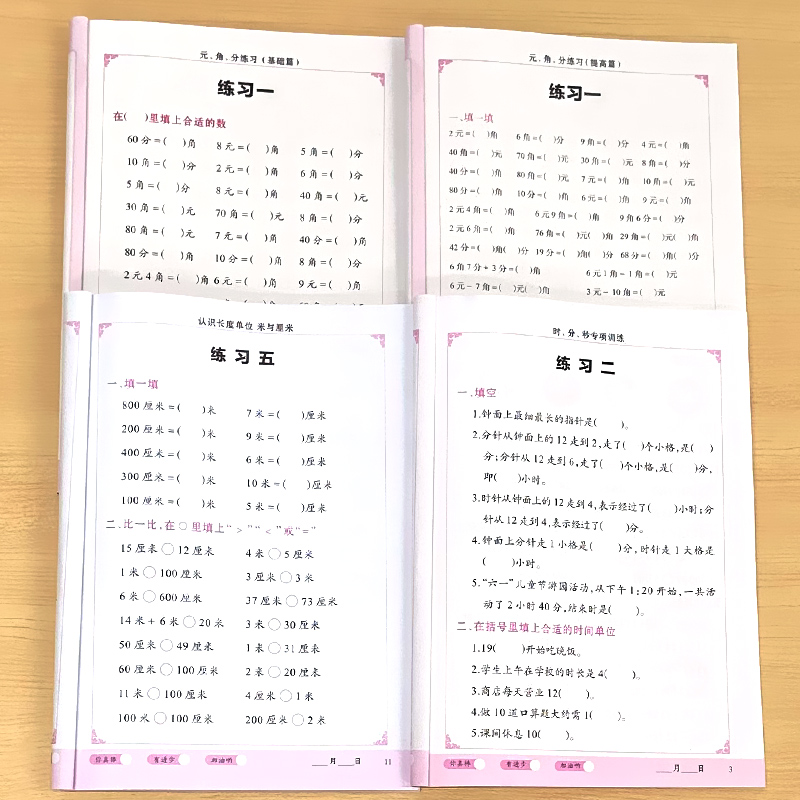 元、角、分练习(基础篇)
练习一
在( )里填上合适的数
60分=( )角 8元=( )角 5角=( )分
10角=( )分 2元=( )角 6角=( )分
5角=( )分 8元=( )角 40角=( )元
30角=( )元 70角=( )元 8角=( )分
80角=( )元 7元=( )角 40分=( )角
80分=( )角 10分=( )角 8角=( )分
2元4角=( )角 6元=( )角 9元=( )角
元、角、分练习(提高篇)
练习一
一、填一填
2元=( )角 6角=( )分 9角=( )分 4元=( )角
40角=( )元 70角=( )元 30角=( )元 8角=( )分
40分=( )角 80角=( )元 7元=( )角 10角=( )元
80分=( )角 10分=( )角 6元=( )角 9元=( )角
2元4角=( )角 6元9角=( )角 9角6分=( )分
2元6角=( )角 76角=( )元( )角 29角=( )元( )角
42分=( )角( )分 19分=( )角( )分 68分=( )角( )分
6角7分+3分=( )角 6元1角-1角=( )元
6元-7角=( )元( )角 3元-10角=( )元
认识长度单位 米与厘米
练习五
一、填一填
800厘米=( )米 7米=( )厘米
200厘米=( )米 9米=( )厘米
400厘米=( )米 6米=( )厘米
300厘米=( )米 10米=( )厘米
100厘米=( )米 5米=( )厘米
二、比一比,在○里填上“>”“<”或“=”
15厘米○12厘米 4米○5厘米
1米○100厘米 3厘米○3米
6米○600厘米 37厘米○73厘米
14米+6米○20米 3米○30厘米
50厘米○49厘米 1米○31厘米
60厘米○100厘米 2米○20厘米
11米○100厘米 4厘米○1米
100米○100厘米 200厘米○2米
你真棒 有进步 加油哟 ____月____日 11
时、分、秒专项训练
练习二
一、填空
1.钟面上最细最长的指针是( )。
2.分针从钟面上的12走到2,走了( )个小格,是( )
分;分针从12走到6,走了( )个小格,是( )分,
即( )小时。
3.时针从钟面上的12走到4,表示经过了( )小时;分
针从12走到4,表示经过了( )分。
4.钟面上分针走1小格是( )分,时针走1大格是
( )小时。
5.“六一”儿童节游园活动,从下午1:20开始,一共活
动了2小时40分,结束时是( )。
二、在括号里填上合适的时间单位
1.19( )开始吃晚饭。
2.学生上午在学校的时长是4( )。
3.商店每天营业12( )。
4.做10道口算题大约需1( )。
5.课间休息10( )。
你真棒 有进步 加油哟 ____月____日 3